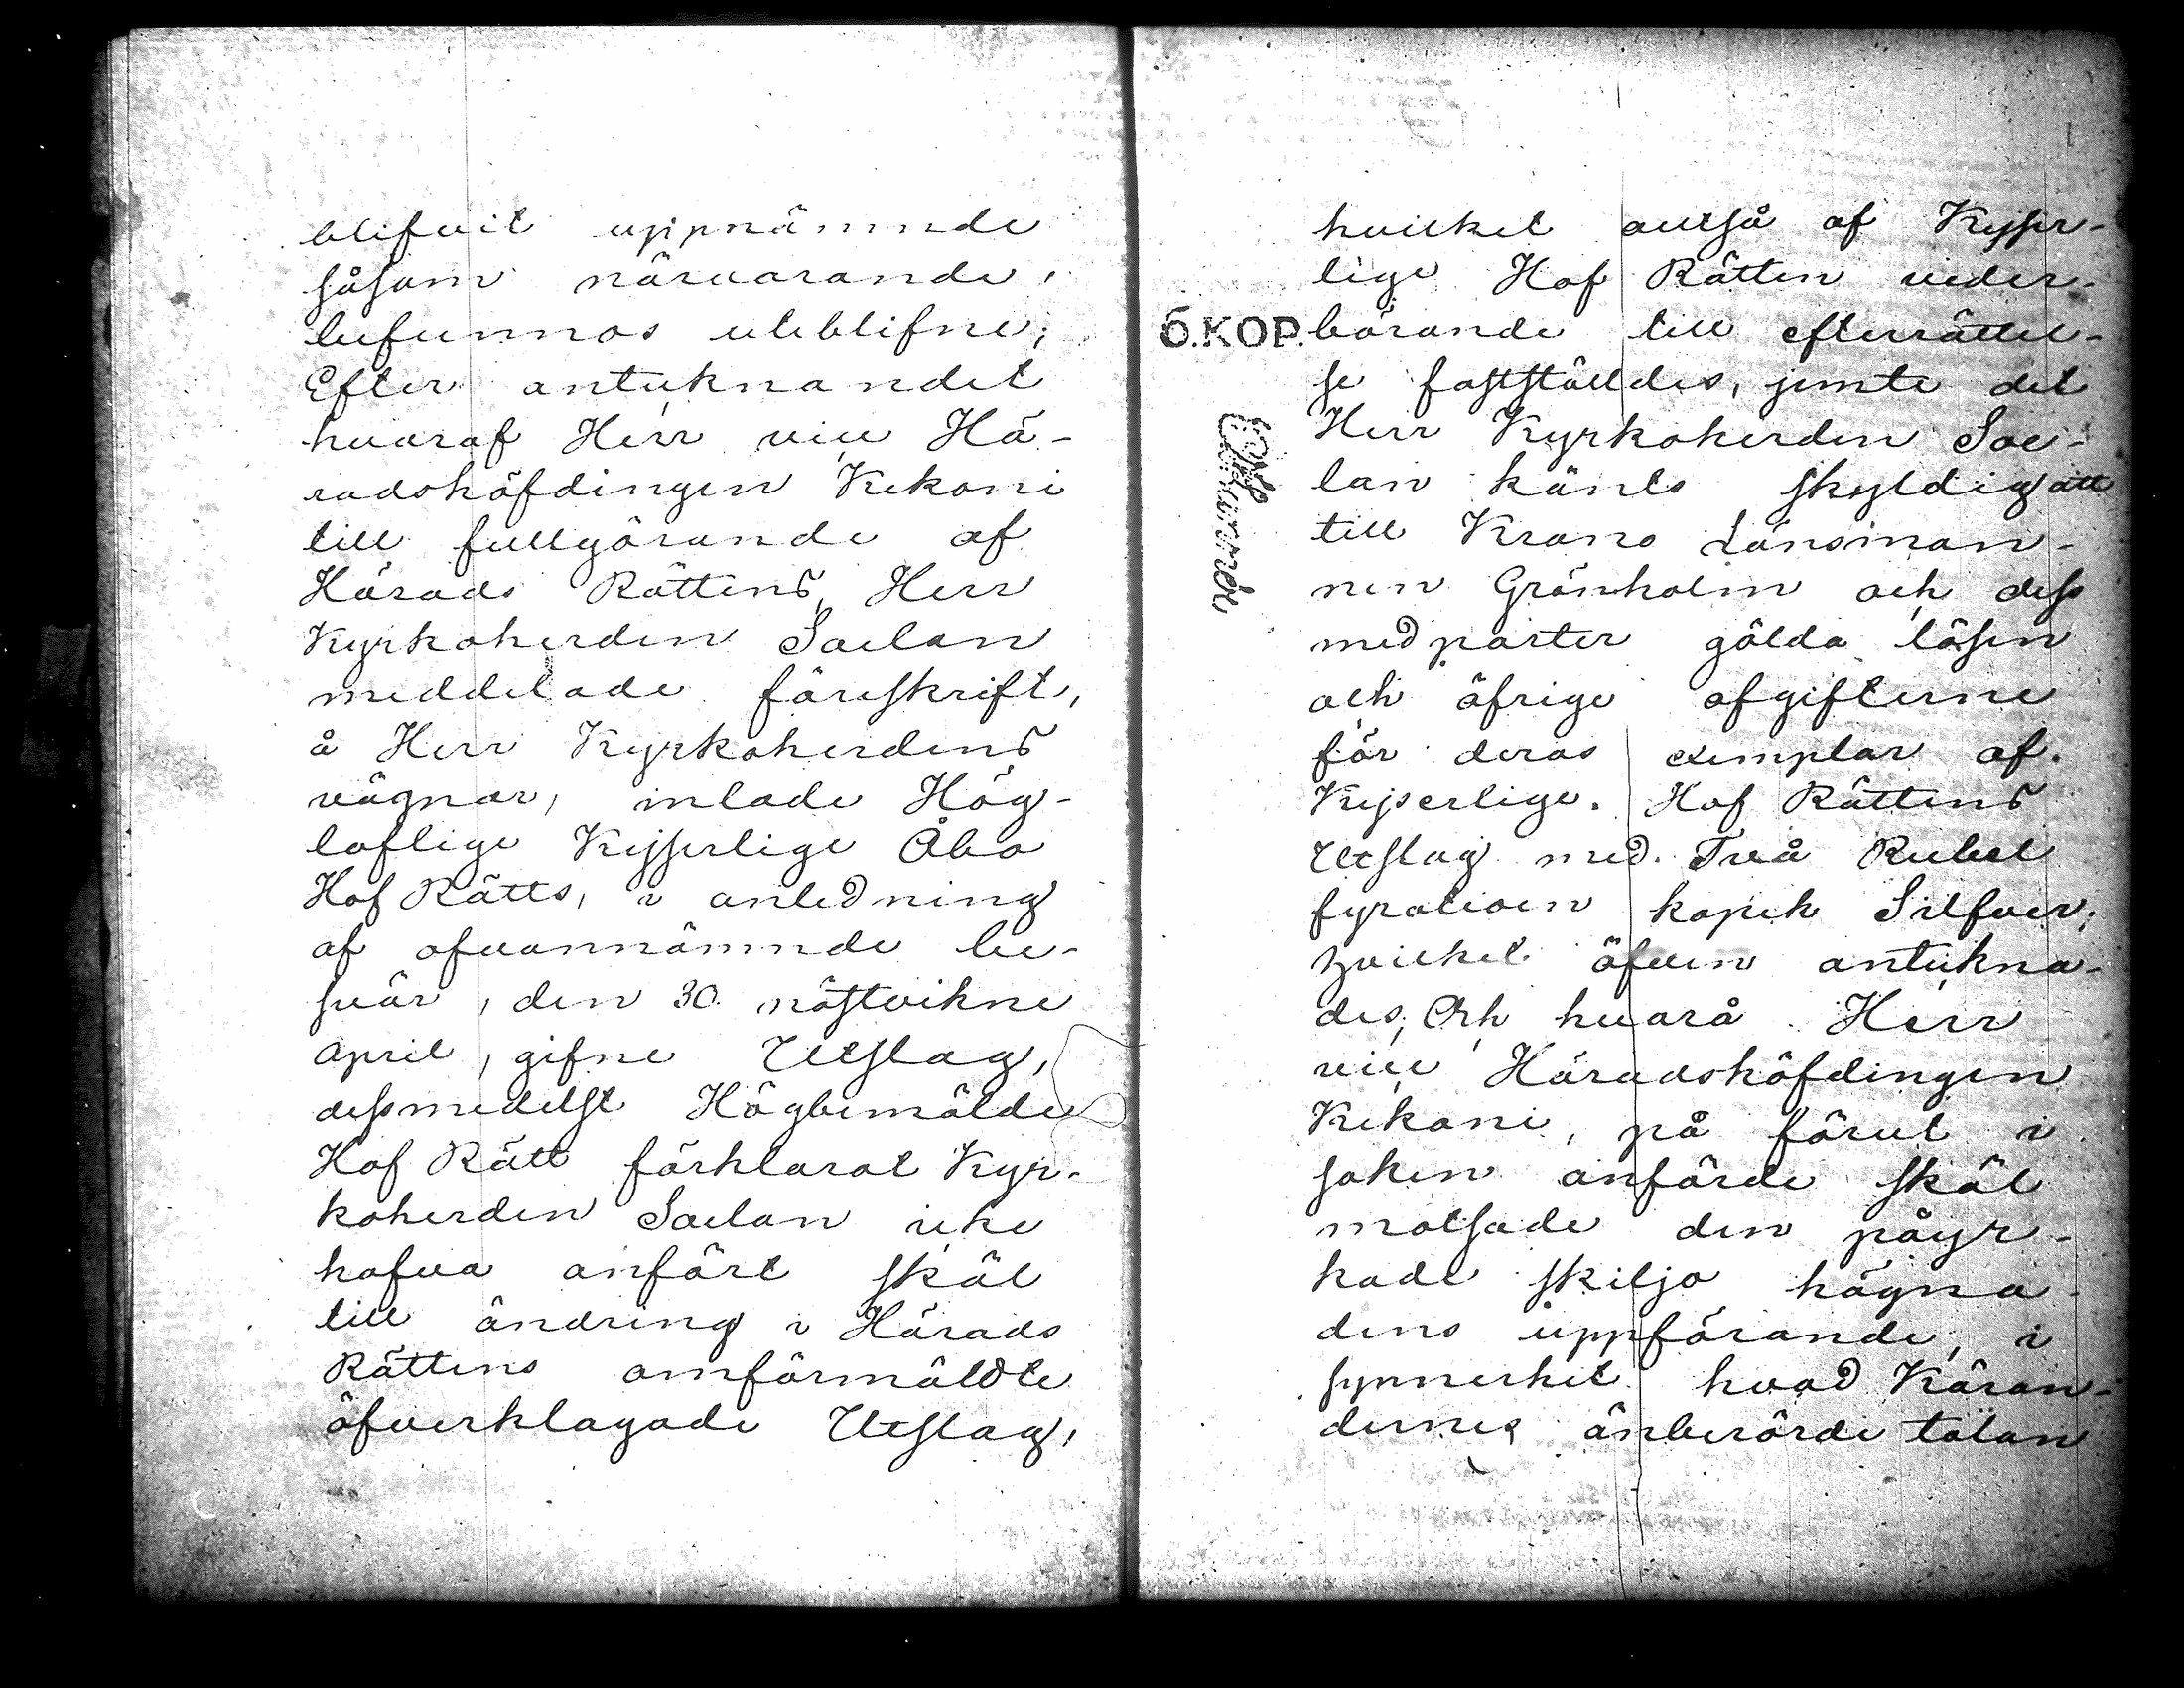 blifvit uppnämnde
såsom närvarande,
befunnos utiblifne;
Efter antecknandet
hvaraf Herr vice Hä-
radshöfdingen Kekoni
till fullgörande af
Härads Rättens, Herr
Kyrkoherden Saelan
meddelade föreskrift,
å Herr Kyrkoherdens
vägnar, inlade Hög-
loflige Kejserlige Åbo
Hof Rätts, i anledning
af ofvannämnde be-
svär, den 30 nästvikne
April, gifne Utslag,
dessmedelst Högbemälde
Hof Rätt förklarat Kyr-
koherden Saelan icke
hafva anfört skäl
till ändring i Härads
Rättens omförmäldte
öfverklagade Utslag,
hvilket altså af Kejser-
lige Hof Rätten veder-
б.КОР. börande till efterrättel-
se fastställdes, jemte det
Herr Kyrkoherden Sae-
lan känts skyldig att
till Krono Länsman-
nen Grönholm och dess
medparter gälda lösen
och öfrige afgifterne
för deras exemplar af
Kejserlige Hof Rättens
Utslag med Två Rubel
fyratioen kopek Silfver;
Hvilket äfven anteckna-
des; Och hvarå Herr
vice Häradshöfdingen
Kekoni, på förut i
saken anförde skäl
motsade den påyr-
kade skiljo hägna-
dens uppförande, i
synnerhet hvad Käran-
dernes änberörde talan